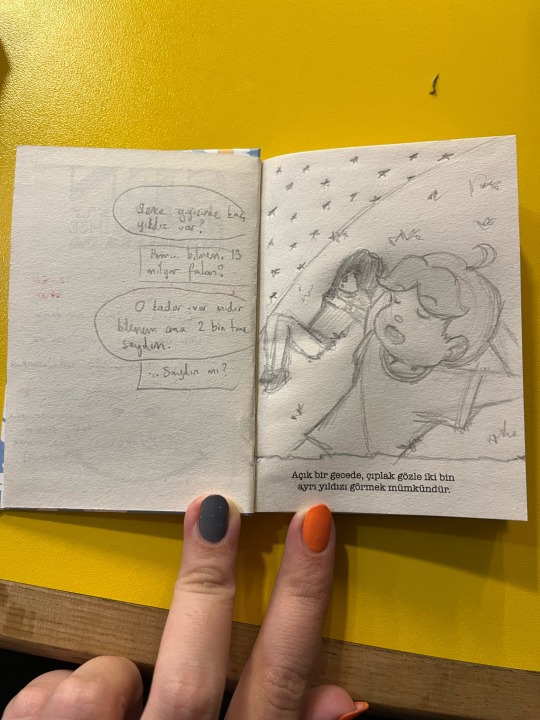 Sence gökyüzünde kaç
yıldız var?
bilmem, 13
milyar falan?
O kadar var mıdır
bilemem ama 2 bin tane
saydım.
... Saydın mı?
Açık bir gecede, çıplak gözle iki bin
ayrı yıldızı görmek mümkündür.